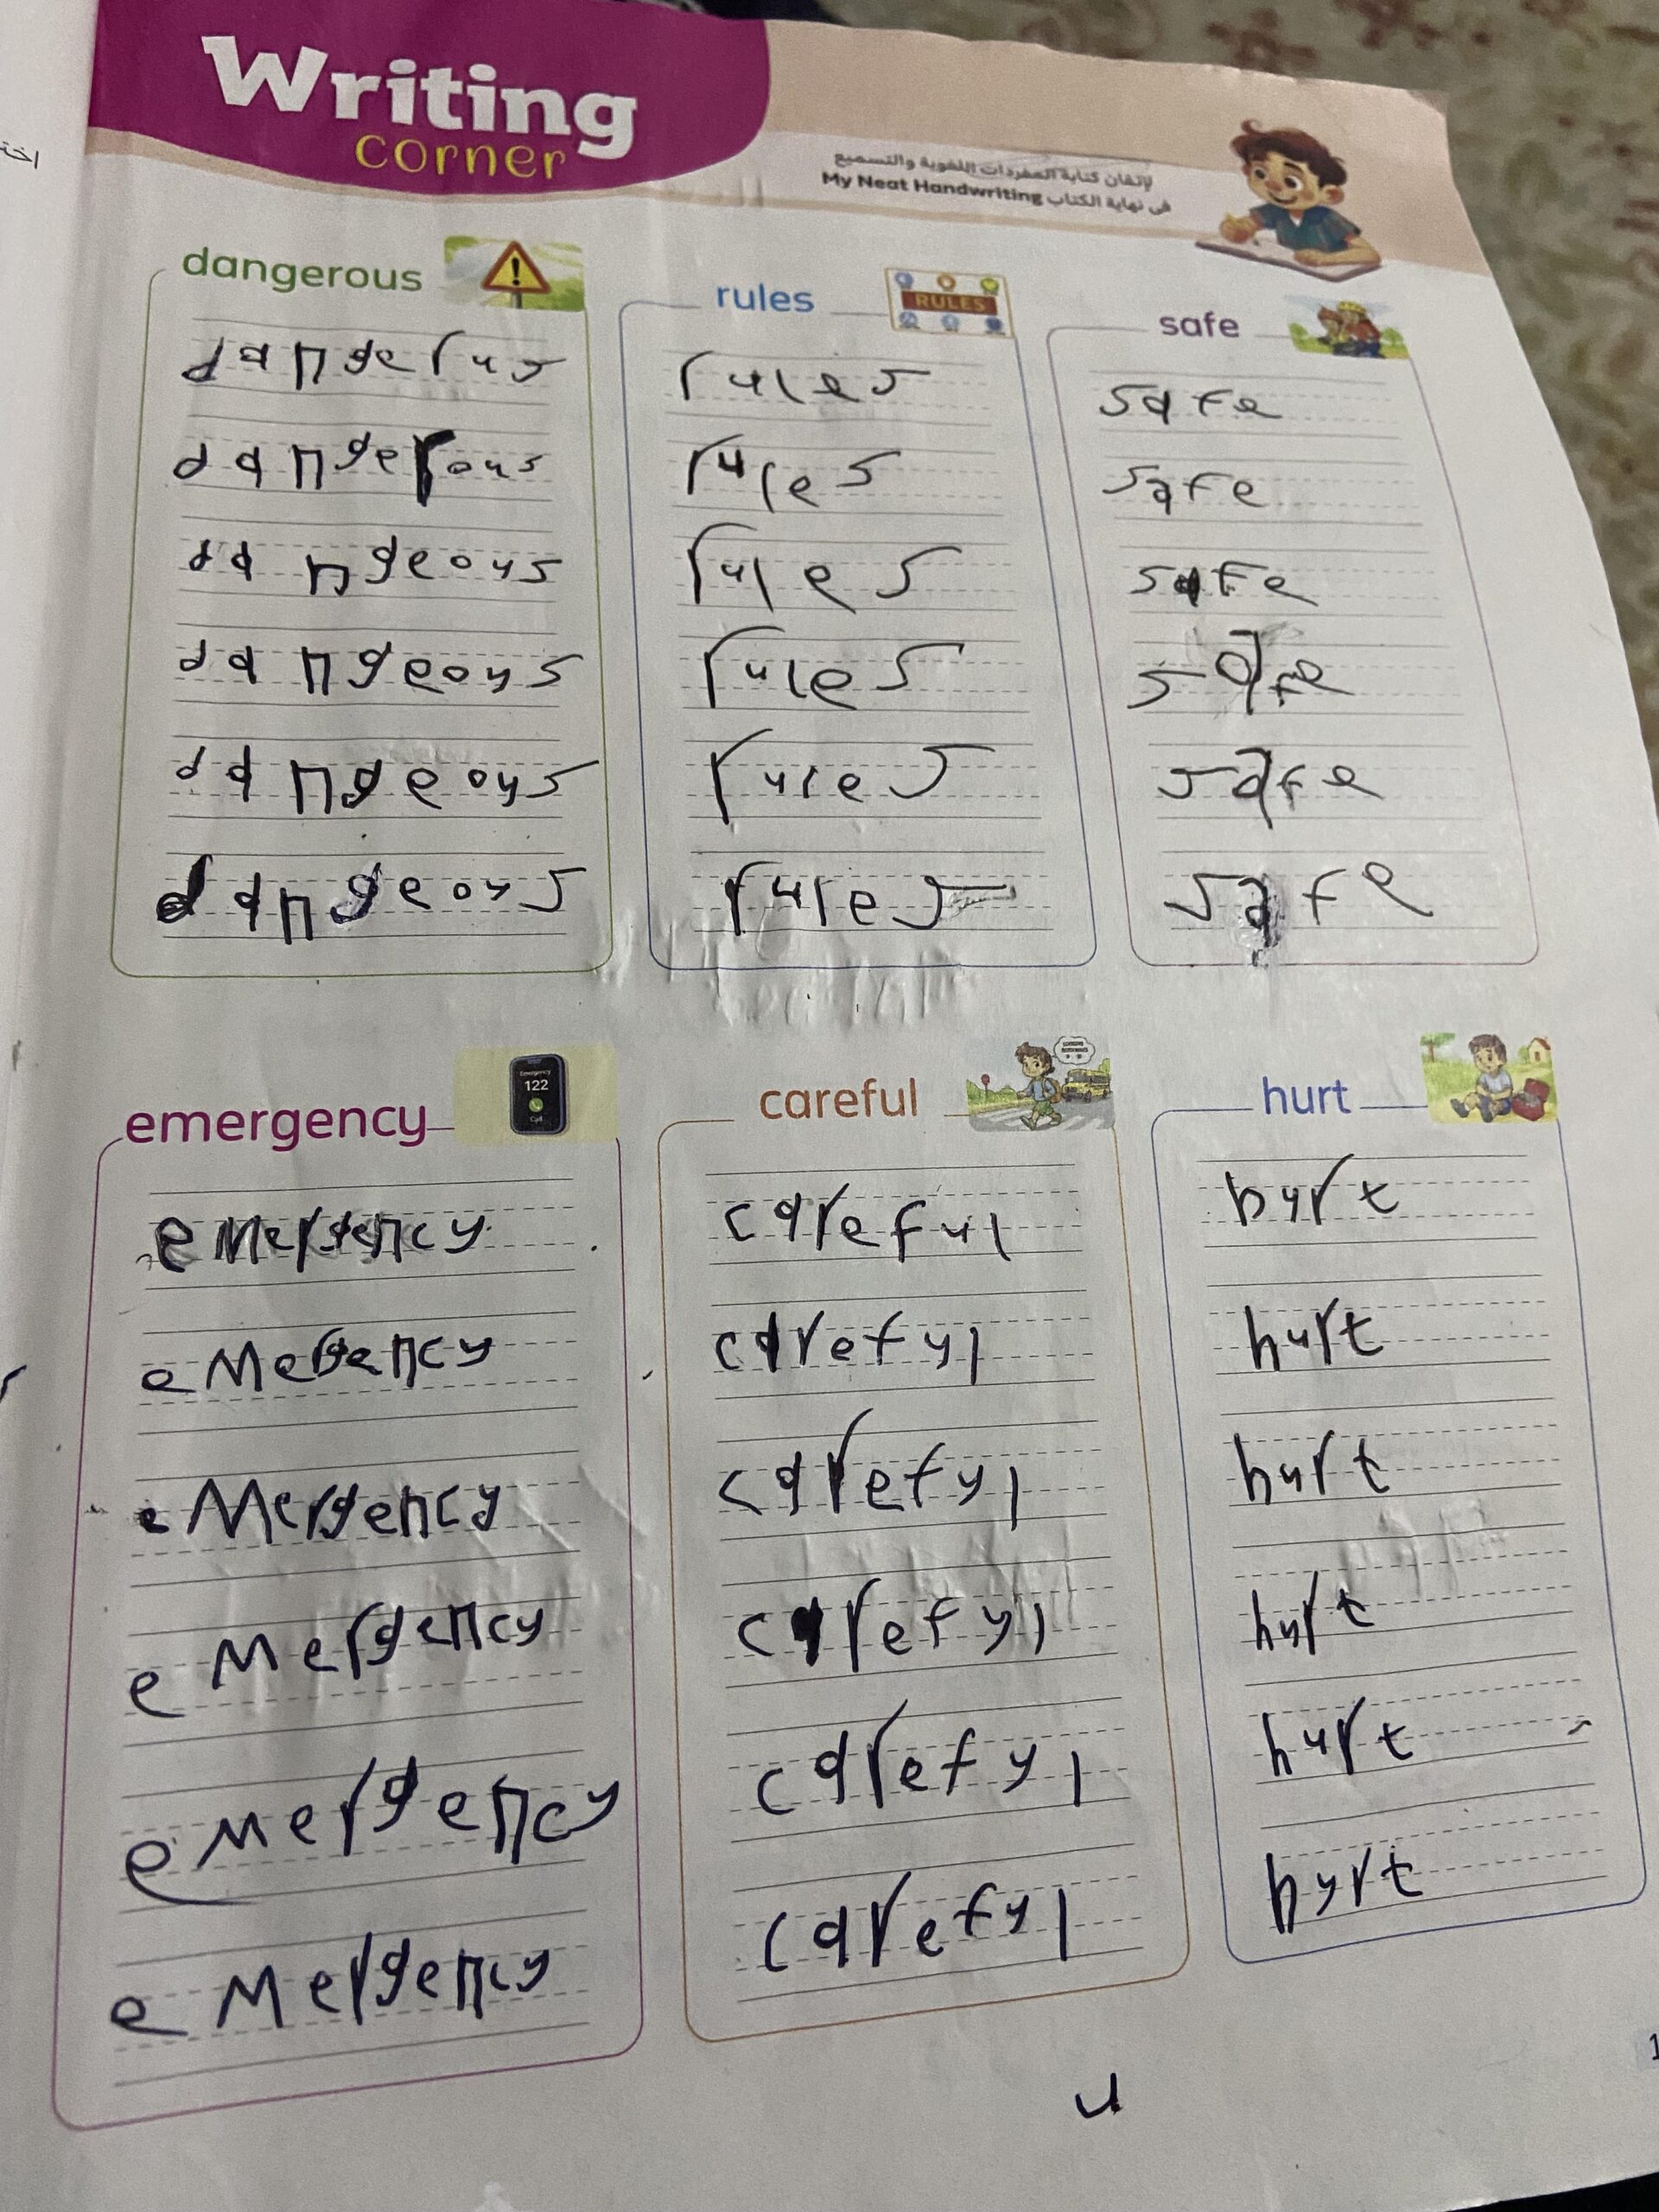 Writing
corner
لإتقان كتابة المفردات اللغوية والتسميع
في نهاية الكتاب My Neat Handwriting
dangerous
dangerus
dangerous
dangeous
dangeous
dangeous
dangeous
rules
RULES
rules
rules
rules
rules
rules
rules
safe
safe
safe
safe
safe
safe
safe
emergency
Emergency
122
Call
eMergency
eMergency
eMergency
eMergency
eMergency
eMergency
careful
careful
carefyl
carefyl
carefyl
carefyl
carefyl
hurt
hyrt
hurt
hurt
hurt
hurt
hyrt
u